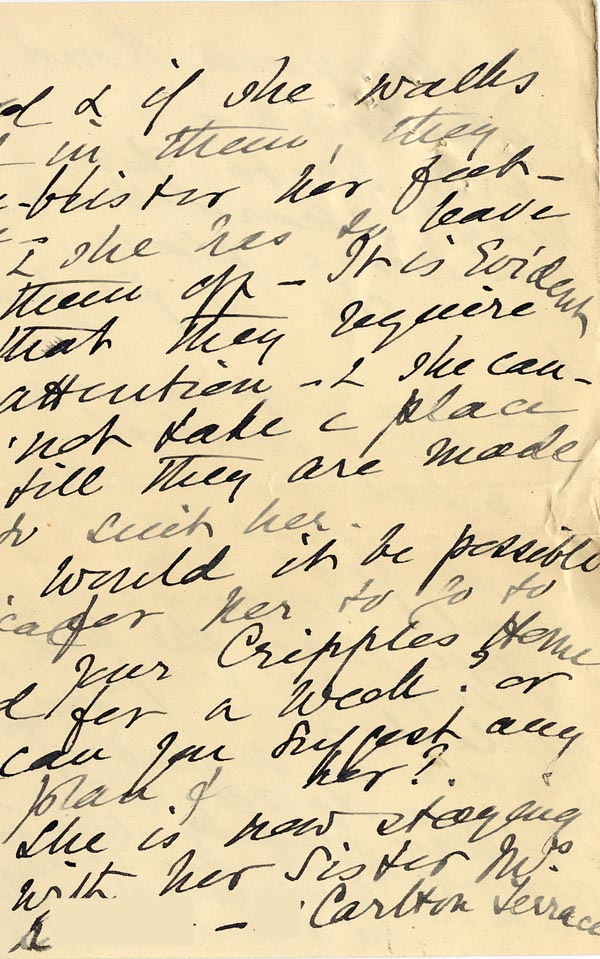 & if she walks
in them, they
blister her feet -
& she has to leave
them off - It is Evident
that they require
attention - & she can-
not take a place
till they are made
to suit her.
Would it be possible
for her to go to
your Cripples Home
for a week? or
can you suggest any
plan for her?
She is now staying
with her Sister Mrs
- Carlton Terrace